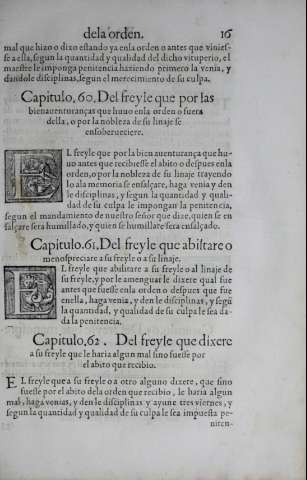 dela orden. 16
mal que hizo o dixo estando ya enla orden o antes que vinies-
se a ella, segun la quantidad y qualidad del dicho vituperio, el
maestre le imponga penitencia haziendo primero la venia, y
dandole disciplinas, segun el merecimiento de su culpa.
Capitulo. 60. Del freyle que por las
bienauenturanças que huuo enla orden o fuera
della, o por la nobleza de su linaje se
ensoberueciere.
EL freyle que por la bien auenturança que hu-
uo antes que recibiesse el abito o despues enla
orden, o por la nobleza de su linaje trayendo
lo ala memoria se ensalçare, haga venia y den
le disciplinas, y segun la quantidad y quali-
dad de su culpa le impongan la penitencia,
segun el mandamiento de nuestro señor que dize, quien se en
salçare sera humillado, y quien se humillare sera ensalçado.
Capitulo. 61. Del freyle que abiltare o
menospreciare a su freyle o a su linaje.
EL freyle que abiltare a su freyle o al linaje de
su freyle, y por le amenguar le dixere qual fue
antes que fuesse enla orden o despues que fue
enella, haga venia, y den le disciplinas, y segũ
la quantidad, y qualidad de su culpa le sea da-
da la penitencia.
Capitulo. 62. Del freyle que dixere
a su freyle que le haria algun mal sino fuesse por
el abito que recibio.
EL freyle que a su freyle o a otro alguno dixere, que sino
fuesse por el abito dela orden que recibio, le haria algun
mal, haga venias, y den le disciplinas y ayune tres viernes, y
segun la quantidad y qualidad de su culpa le sea impuesta pe-
niten-